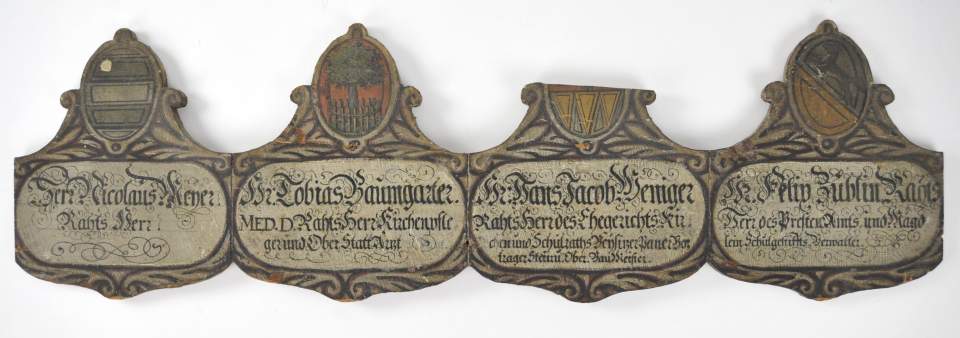 Herr Nicolaus Meyer.
Rahts Herr.
Hr. Tobias Baumgarter
MED. D. Rahts Herr Kirchenpfle
ger und Ober Statt Arzt
Hr. Hans Jacob Weniger
Rahts Herr des Ehegerichts Kir
chen und Schulraths Beysizer Paner Vor
trager
Ober Bau Meister.
Hr. Felix Züblin Rahts
Herr des Presten Amts und Magd
lein Schulgerichts Verwalter.